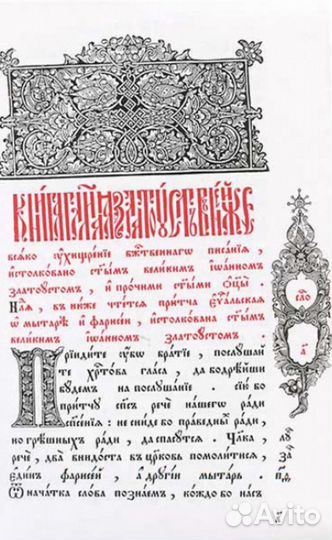 Кни́га гл҃емаѧ златоꙋ́стъ, в не́йже
всѧ́ко ᲂу҆хищре́нїе бж҃е́ственнагѡ писа́нїѧ,
и҆столко́вано ст҃ы́мъ вели́кимъ і҆ѡа́нномъ
златоꙋ́стомъ, и҆ про́чими ст҃ы́ми ѻ҆ц҃ы̀.
Нл҃ѧ, в не́йже чте́тсѧ при́тча є҆ѵ҃льскаѧ
ѡ҆ мытарѣ̀ и҆ фарисе́и, и҆столко́вана ст҃ы́мъ
вели́кимъ і҆ѡа́нномъ златоꙋ́стомъ.
Прїиди́те ᲂу҆́бѡ бра́тїе, послꙋ́шаи
те хр҃то́ва гла́са, да бодрѣ́йши
бꙋ́демъ на послꙋша́нїе. сїю́ бо
при́тчю сп҃съ речѐ на́шегѡ ра́ди
сп҃се́нїѧ: не сни́де бо пра́ведны́хъ ра́ди,
но грѣ́шныхъ ра́ди, да спасꙋ́тсѧ. Чл҃ка,
речѐ, два̀ внидо́ста в цр҃ковь помоли́тисѧ,
є҆ди́нъ фарисе́й, а҆ дрꙋгі́й мыта́рь.
Ѿ нача́тка сло́ва позна́емъ, ко́ждо въ на́съ
сло́
а҃
лꙋ
за҃
Avito